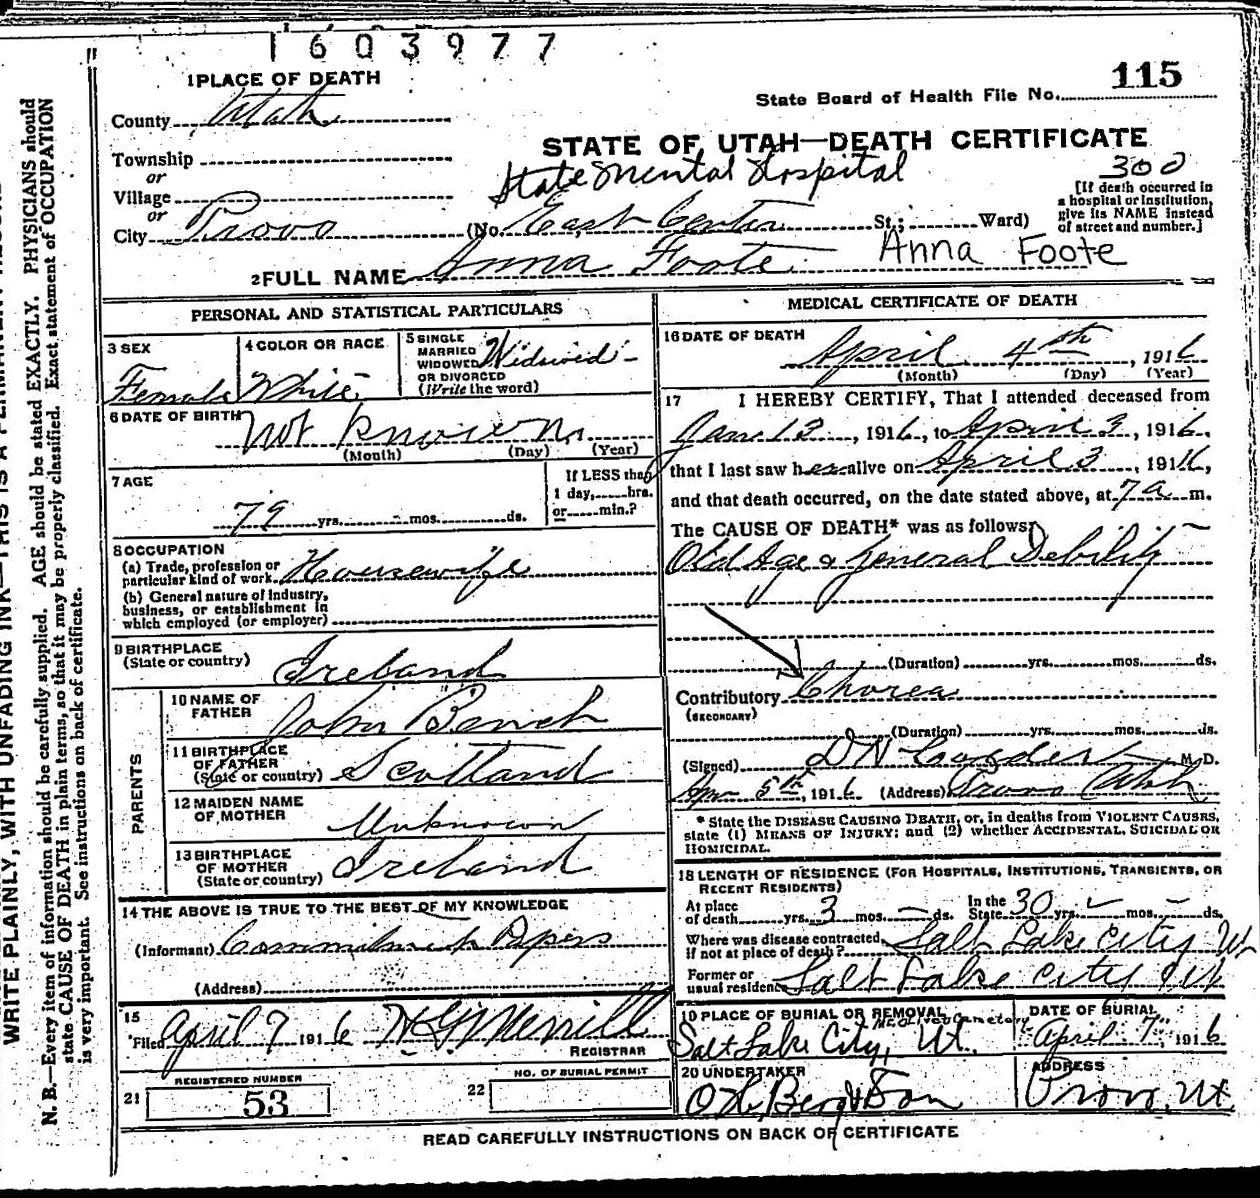 1603977
115
1 PLACE OF DEATH
State Board of Health File No.
County Utah
STATE OF UTAH—DEATH CERTIFICATE
Township
or
State Mental Hospital
300
Village
or
[If death occurred in
a hospital or institution,
give its NAME instead
of street and number.]
City Provo (No. East Center St.; Ward)
2 FULL NAME Anna Foote Anna Foote
PERSONAL AND STATISTICAL PARTICULARS
3 SEX
Female
4 COLOR OR RACE
White
5 SINGLE
MARRIED
WIDOWED
OR DIVORCED
(Write the word)
Widowed
6 DATE OF BIRTH Not Known
(Month) (Day) (Year)
7 AGE
79 yrs. mos. ds.
If LESS than
1 day, hrs.
or min.?
8 OCCUPATION
(a) Trade, profession or
particular kind of work Housewife
(b) General nature of industry,
business, or establishment in
which employed (or employer)
9 BIRTHPLACE
(State or country) Ireland
PARENTS
10 NAME OF
FATHER John Bench
11 BIRTHPLACE
OF FATHER
(State or country) Scotland
12 MAIDEN NAME
OF MOTHER Unknown
13 BIRTHPLACE
OF MOTHER
(State or country) Ireland
14 THE ABOVE IS TRUE TO THE BEST OF MY KNOWLEDGE
(Informant) Commitment Papers
(Address)
15
Filed April 7 1916 Merrill
REGISTRAR
REGISTERED NUMBER
21 53
NO. OF BURIAL PERMIT
22
MEDICAL CERTIFICATE OF DEATH
16 DATE OF DEATH
April 4th, 1916
(Month) (Day) (Year)
17 I HEREBY CERTIFY, That I attended deceased from
Jan 13, 1916, to April 3, 1916,
that I last saw her alive on April 3, 1916,
and that death occurred, on the date stated above, at 7 a m.
The CAUSE OF DEATH* was as follows:
Old Age & General Debility
(Duration) yrs. mos. ds.
Contributory Chorea
(SECONDARY)
(Duration) yrs. mos. ds.
(Signed) D H M. D.
Apr 5th, 1916 (Address) Provo Utah
* State the DISEASE CAUSING DEATH, or, in deaths from VIOLENT CAUSES,
state (1) MEANS OF INJURY; and (2) whether ACCIDENTAL, SUICIDAL OR
HOMICIDAL.
18 LENGTH OF RESIDENCE (FOR HOSPITALS, INSTITUTIONS, TRANSIENTS, OR
RECENT RESIDENTS)
At place
of death yrs. 3 mos. - ds.
In the
State 30 yrs. - mos. - ds.
Where was disease contracted,
if not at place of death? Salt Lake City Ut
Former or
usual residence Salt Lake City Ut
19 PLACE OF BURIAL OR REMOVAL
Mt Olivet Cemetery
Salt Lake City, Ut.
DATE OF BURIAL
April 7th, 1916
20 UNDERTAKER
O H Berg & Son
ADDRESS
Provo, Ut
READ CAREFULLY INSTRUCTIONS ON BACK OF CERTIFICATE
WRITE PLAINLY, WITH UNFADING INK—THIS IS A PERMANENT RECORD
N. B.—Every item of information should be carefully supplied. AGE should be stated EXACTLY. PHYSICIANS should
state CAUSE OF DEATH in plain terms, so that it may be properly classified. Exact statement of OCCUPATION
is very important. See instructions on back of certificate.